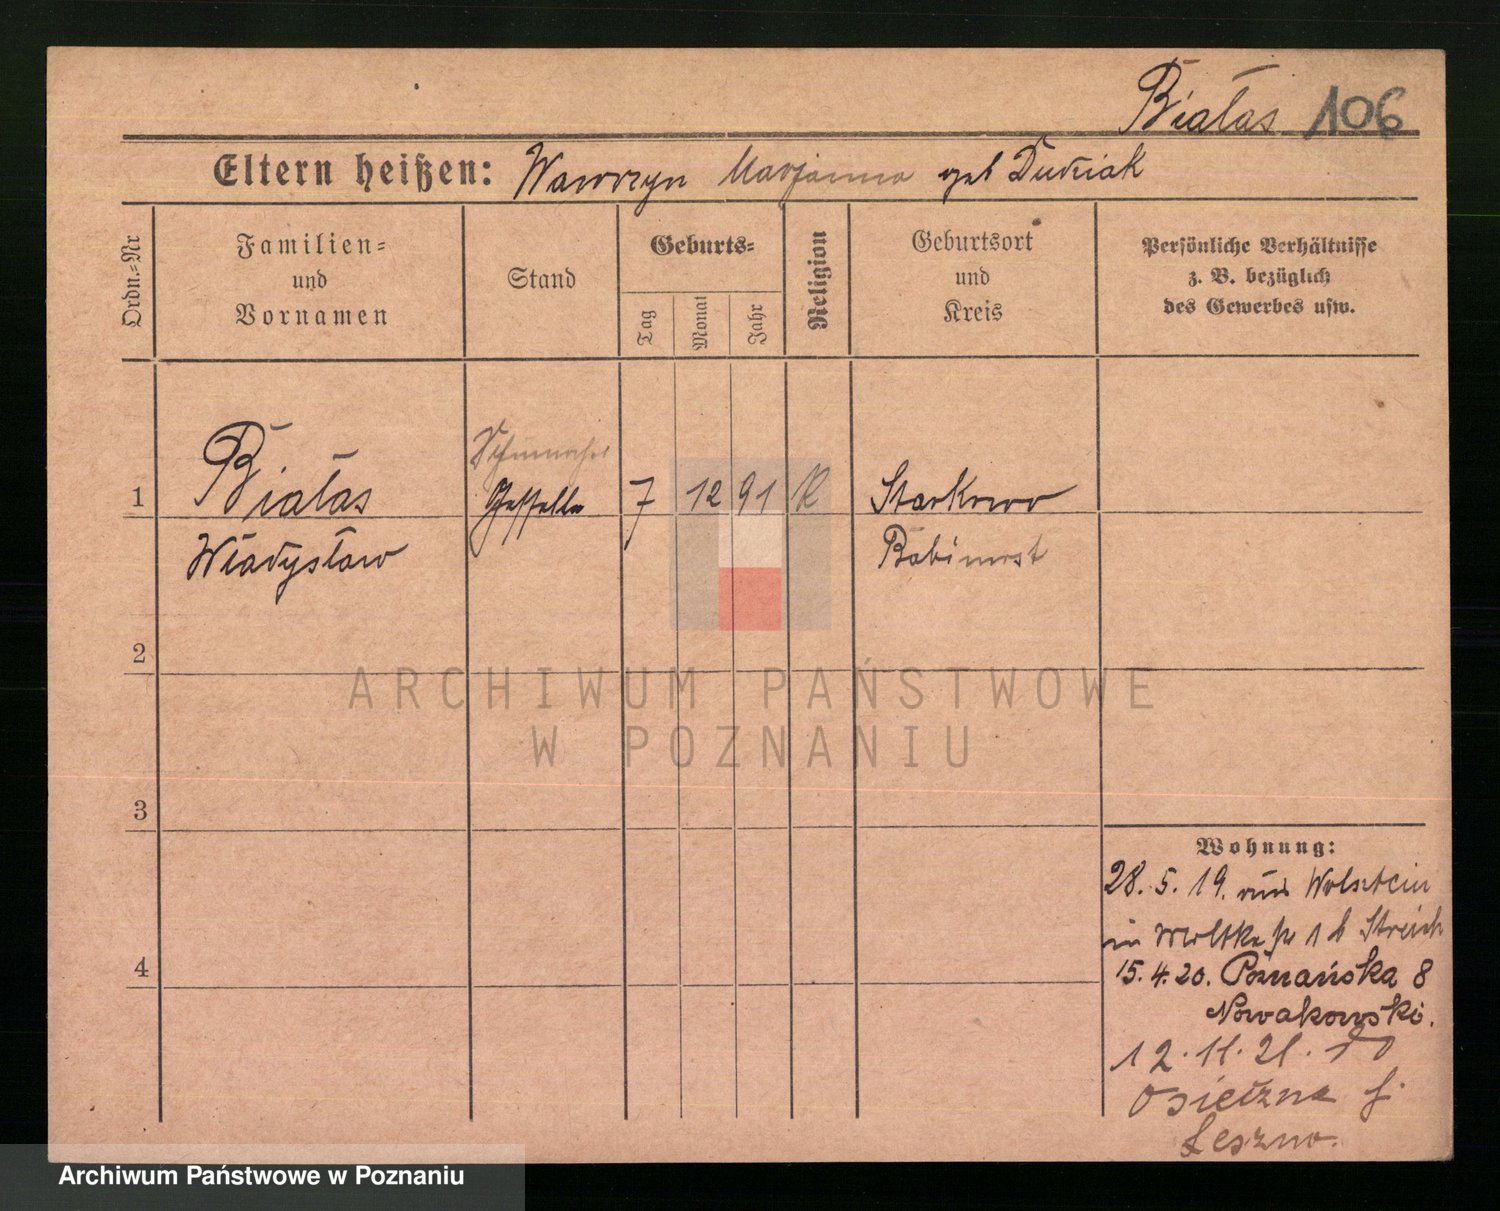 Białas 106
Eltern heißen: Wawrzyn Marjanna geb Dudziak
Ordn.=Nr
Familien=
und
Vornamen
Stand
Geburts=
Tag
Monat
Jahr
Religion
Geburtsort
und
Kreis
Persönliche Verhältnisse
z. B. bezüglich
des Gewerbes usw.
1 Białas Geselle 7 12 91 K Starkowo
Władysław Babimost
2
3
4
Wohnung:
28. 5. 19. aus Wolstein
in Moltke 1 b Streich
15. 4. 20. Poznańska 8
Nowakowski.
12. 11. 21.
Osieczna
Leszno.
ARCHIWUM PAŃSTWOWE
W POZNANIU
Archiwum Państwowe w Poznaniu